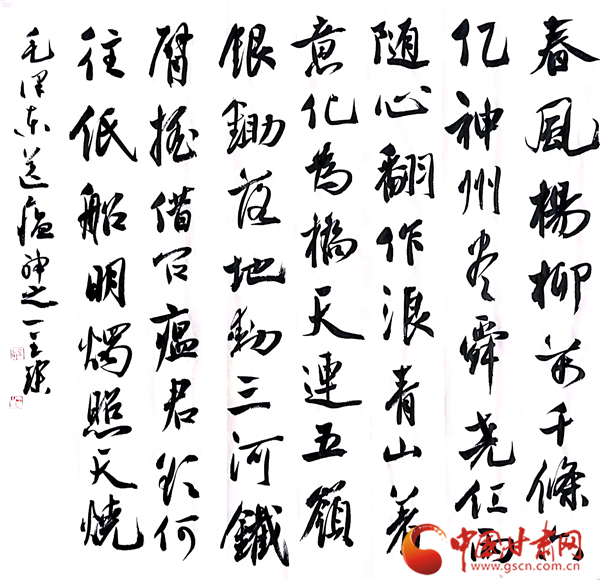 春風楊柳万千條六
亿神州尽舜尧红雨
随心翻作浪青山着
意化为橋天連五嶺
銀鋤落地動三河鐵
臂摇借问瘟君欲何
往纸船明燭照天燒
毛泽东送瘟神之一
中国甘肃网
www.gscn.com.cn